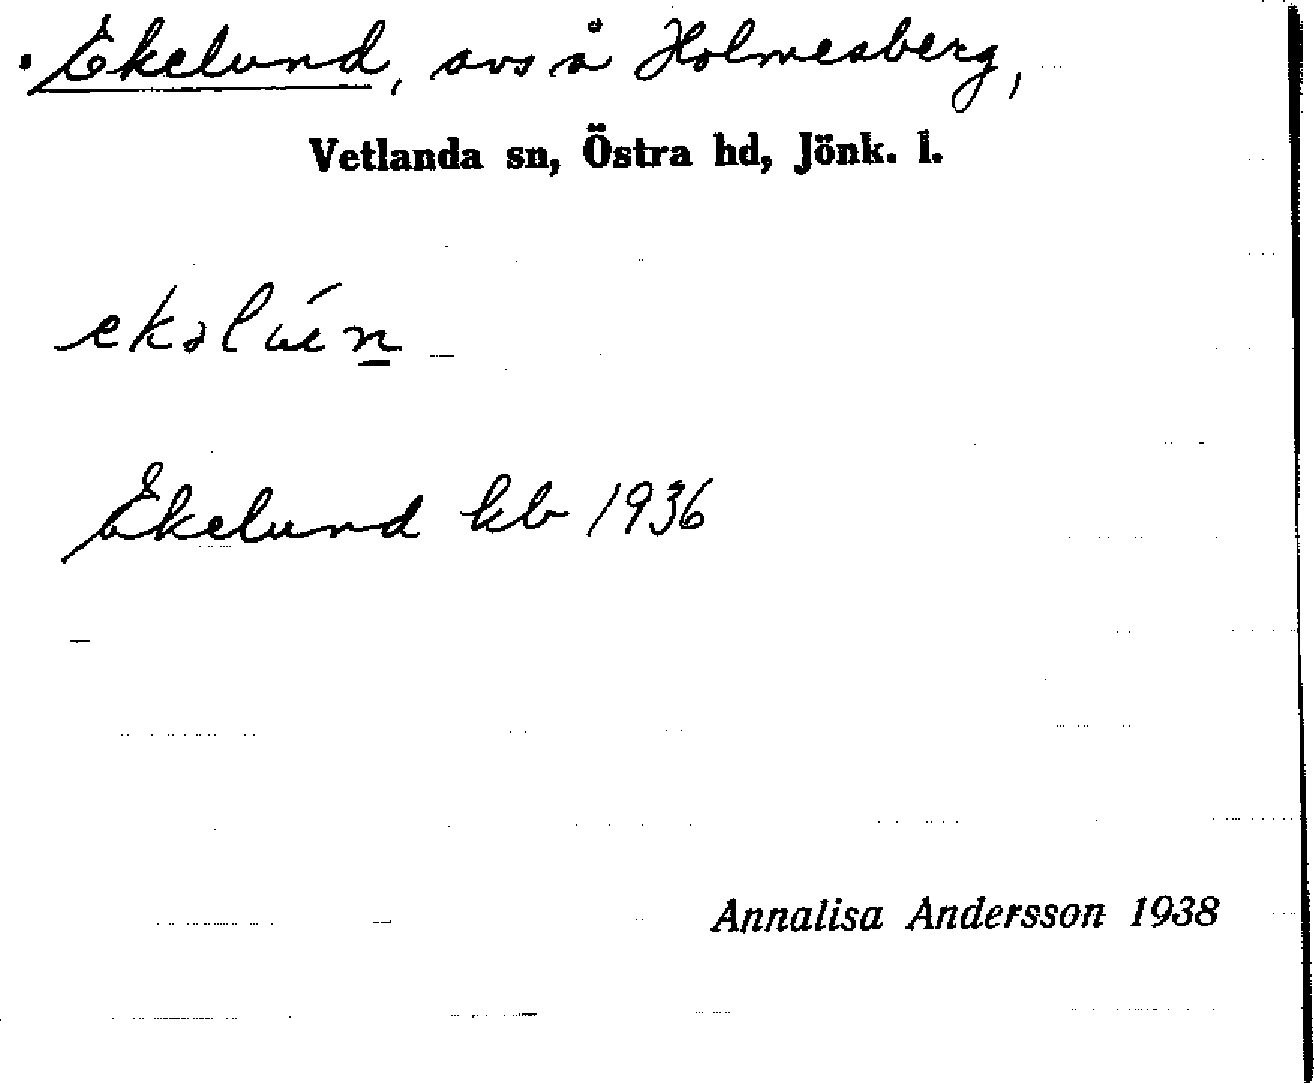 Ekelund, avs å Holmesberg,
Vetlanda sn, Östra hd, Jönk. l.
Ekelund kb 1936
Annalisa Andersson 1938